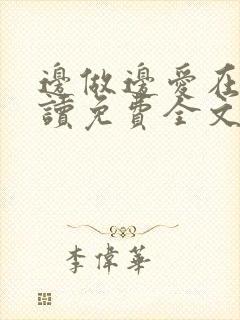 邊做邊愛在
讀免費全文
李偉華